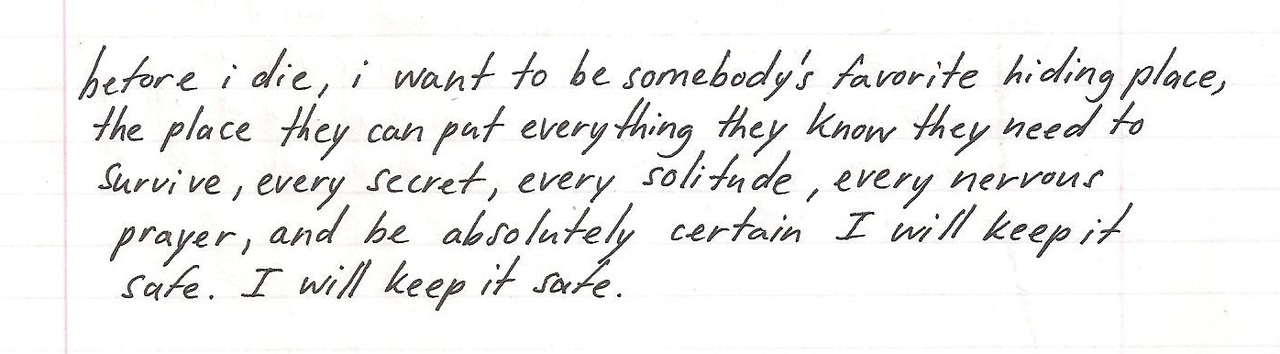 before i die, i want to be somebody's favorite hiding place,
the place they can put everything they know they need to
survive, every secret, every solitude, every nervous
prayer, and be absolutely certain I will keep it
safe. I will keep it safe.